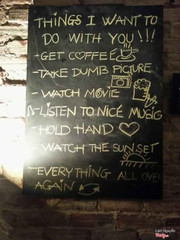 THINGS I WANT TO
DO WITH YOU!!!
- GET COFFEE
- TAKE DUMB PICTURE
- WATCH MOVIE
- LISTEN TO NICE MUSIC
- HOLD HAND
- WATCH THE SUNSET
- EVERYTHING ALL OVER
AGAIN